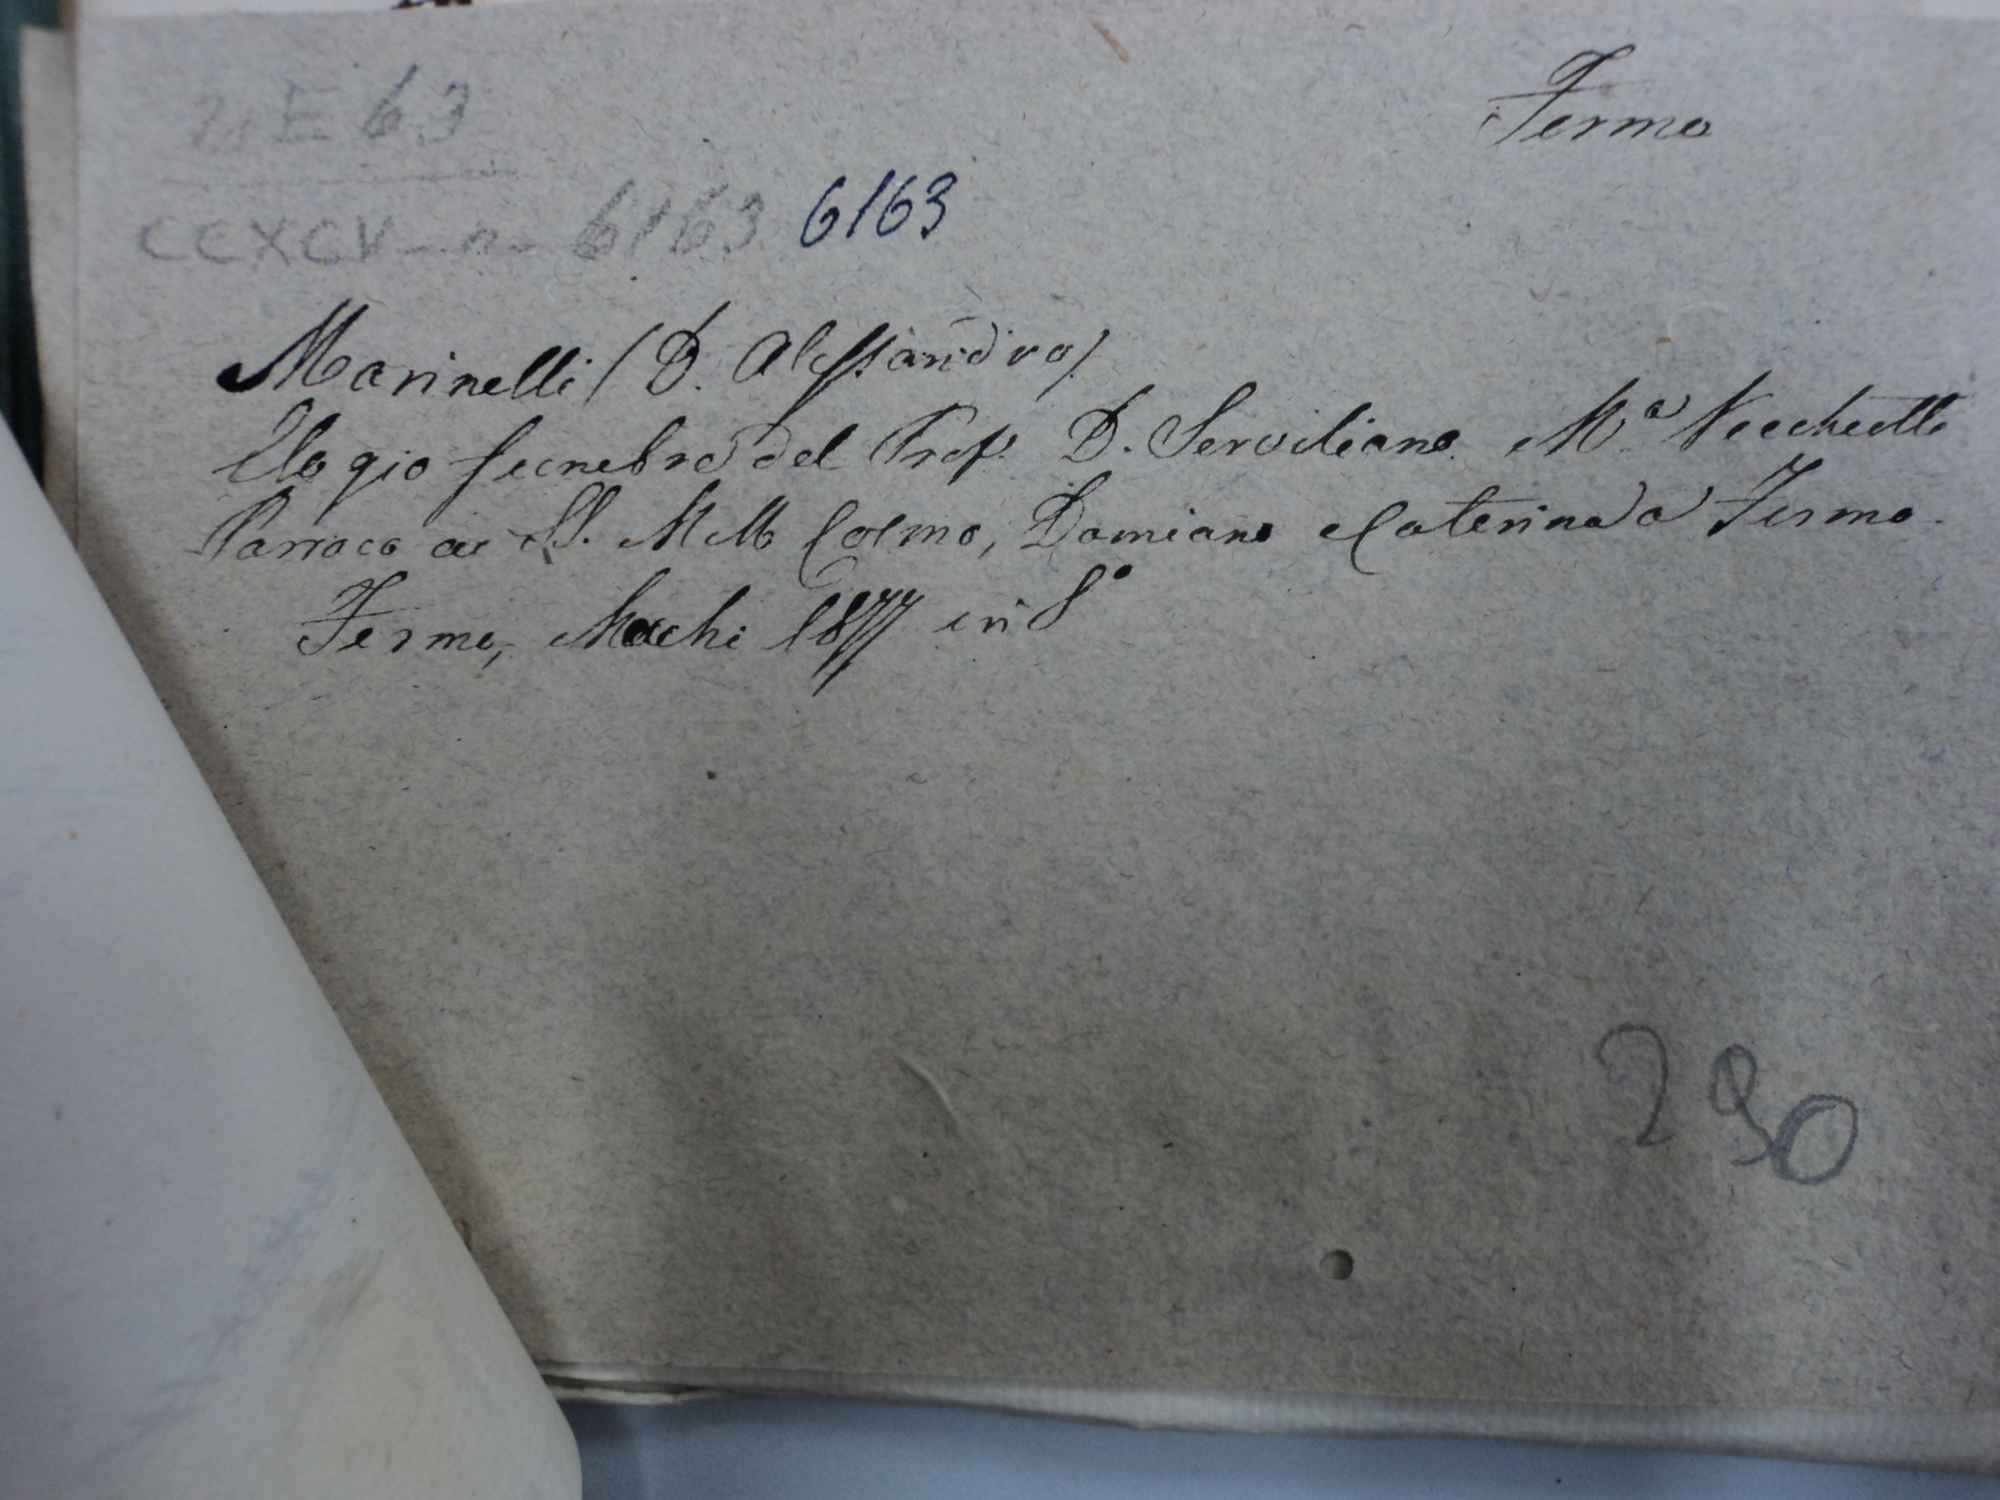 Fermo
E 63
CCXCV - n - 6163 6163
Marinelli (D. Alessandro)
Elogio funebre del Prof. D. Serviliano Mª Vecchiotti
Parroco ai SS. MM Cosmo, Damiano e Caterina a Fermo.
Fermo, Bacchi 1877 in 8°
290